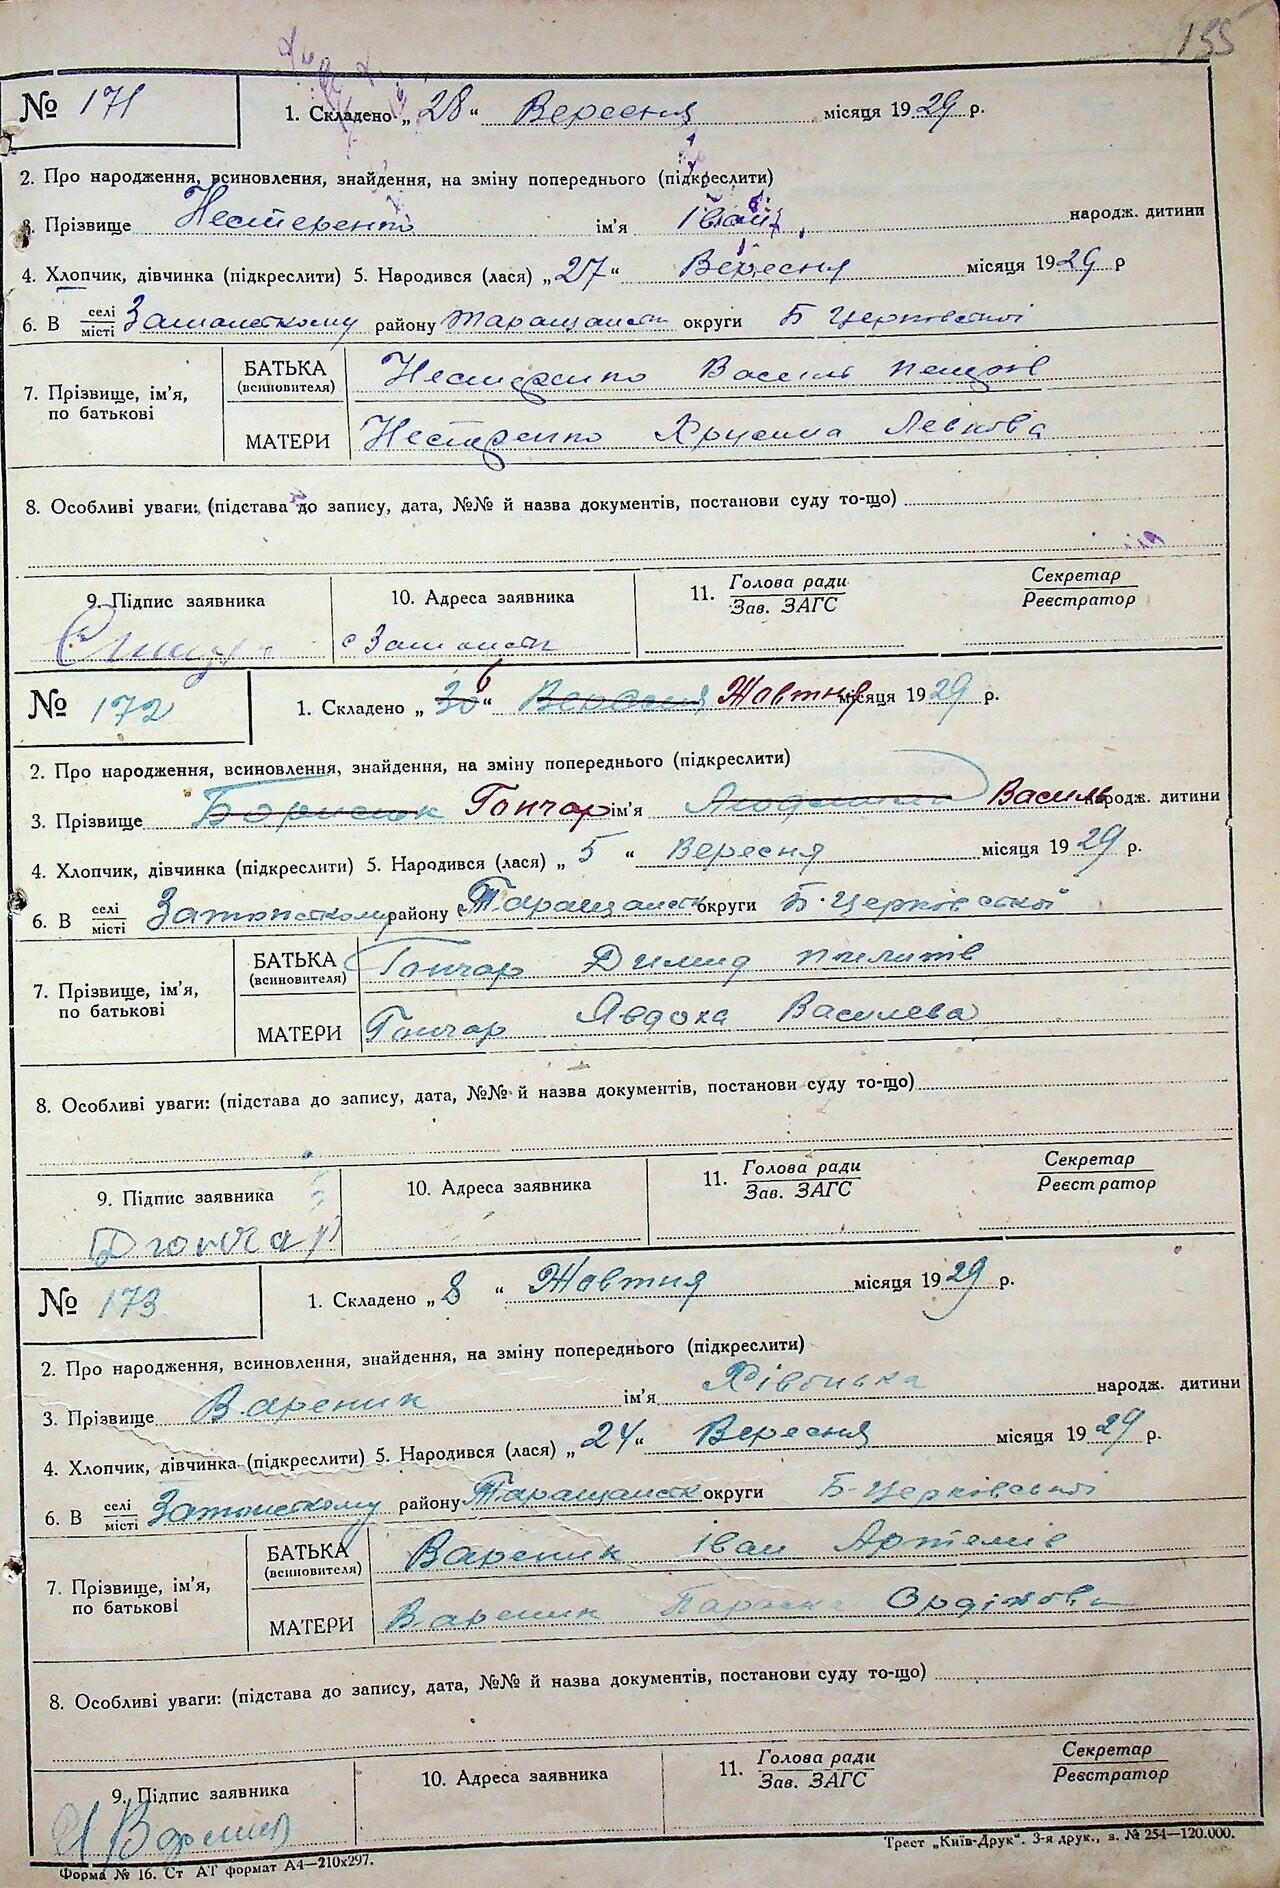 155
№ 171
1. Складено „ 28 “ Вересня місяця 1929 р.
2. Про народження, всиновлення, знайдення, на зміну попереднього (підкреслити)
3. Прізвище Нестеренко ім'я Іван народж. дитини
4. Хлопчик, дівчинка (підкреслити) 5. Народився (лася) „ 27 “ Вересня місяця 1929 р
6. В селі/місті району Таращанськ округи Б Церковської
7. Прізвище, ім'я, по батькові
БАТЬКА (всиновителя) Нестеренко Василь
МАТЕРИ Нестеренко Левкова
8. Особливі уваги: (підстава до запису, дата, №№ й назва документів, постанови суду то-що)
9. Підпис заявника 10. Адреса заявника 11. Голова ради/Зав. ЗАГС Секретар/Реєстратор
с
№ 172
1. Складено „ 30 6 “ Вересня Жовтня місяця 1929 р.
2. Про народження, всиновлення, знайдення, на зміну попереднього (підкреслити)
3. Прізвище Гончар ім'я Василь народж. дитини
4. Хлопчик, дівчинка (підкреслити) 5. Народився (лася) „ 5 “ Вересня місяця 1929 р.
6. В селі/місті району Таращанськ округи Б-Церковської
7. Прізвище, ім'я, по батькові
БАТЬКА (всиновителя) Гончар Димид
МАТЕРИ Гончар Явдоха Василева
8. Особливі уваги: (підстава до запису, дата, №№ й назва документів, постанови суду то-що)
9. Підпис заявника 10. Адреса заявника 11. Голова ради/Зав. ЗАГС Секретар/Реєстратор
№ 173
1. Складено „ 8 “ Жовтня місяця 1929 р.
2. Про народження, всиновлення, знайдення, на зміну попереднього (підкреслити)
3. Прізвище Вареник ім'я народж. дитини
4. Хлопчик, дівчинка (підкреслити) 5. Народився (лася) „ 24 “ Вересня місяця 1929 р.
6. В селі/місті району Таращанськ округи Б-Церківської
7. Прізвище, ім'я, по батькові
БАТЬКА (всиновителя) Вареник Іван Артемів
МАТЕРИ Вареник Параска
8. Особливі уваги: (підстава до запису, дата, №№ й назва документів, постанови суду то-що)
9. Підпис заявника 10. Адреса заявника 11. Голова ради/Зав. ЗАГС Секретар/Реєстратор
Форма № 16. Ст АТ формат А4—210x297. Трест „Київ-Друк“. 3-я друк., з. № 254—120.000.